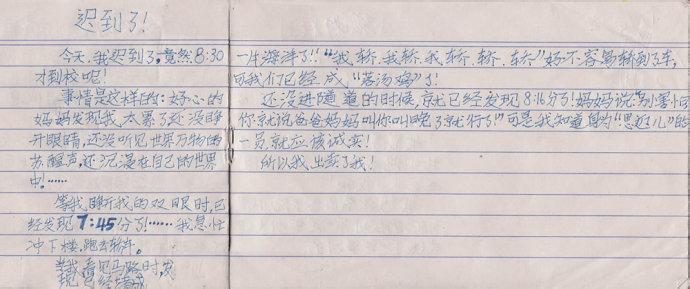 迟到了!
今天,我迟到了,竟然8:30
才到校呢!
事情是这样的:好心的
妈妈发现我太累了还没睁
开眼睛,还没听见世界万物的
苏醒声,还沉浸在自己的世界
中!……
等我睁开我的双眼时,已
经发现7:45分了!……我急忙
冲下楼,跑去轿车。
当我看见马路时,发
现已经堵成
一片海洋了!!“我轿,我轿,我轿、轿、轿”好不容易轿到了车,
可我们已经成“落汤鸡”了!
还没进隧道的时候,就已经发现8:16分了!妈妈说:“别害怕
你就说爸爸妈妈叫你叫晚了就行了!”可是我知道身为“思迈儿”的
一员,就应该诚实!
所以我出卖了我!